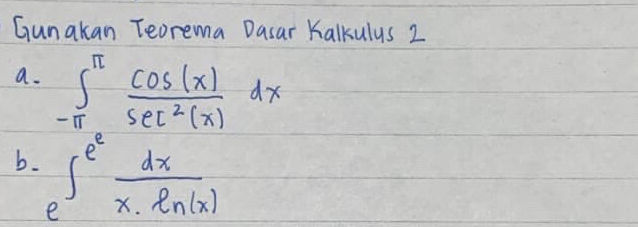 Gunakan Teorema Dasar Kalkulus 2
a. ∫_{-π}^{π} cos(x)/sec²(x) dx
b. ∫_{e}^{e^e} dx/(x. ln(x))